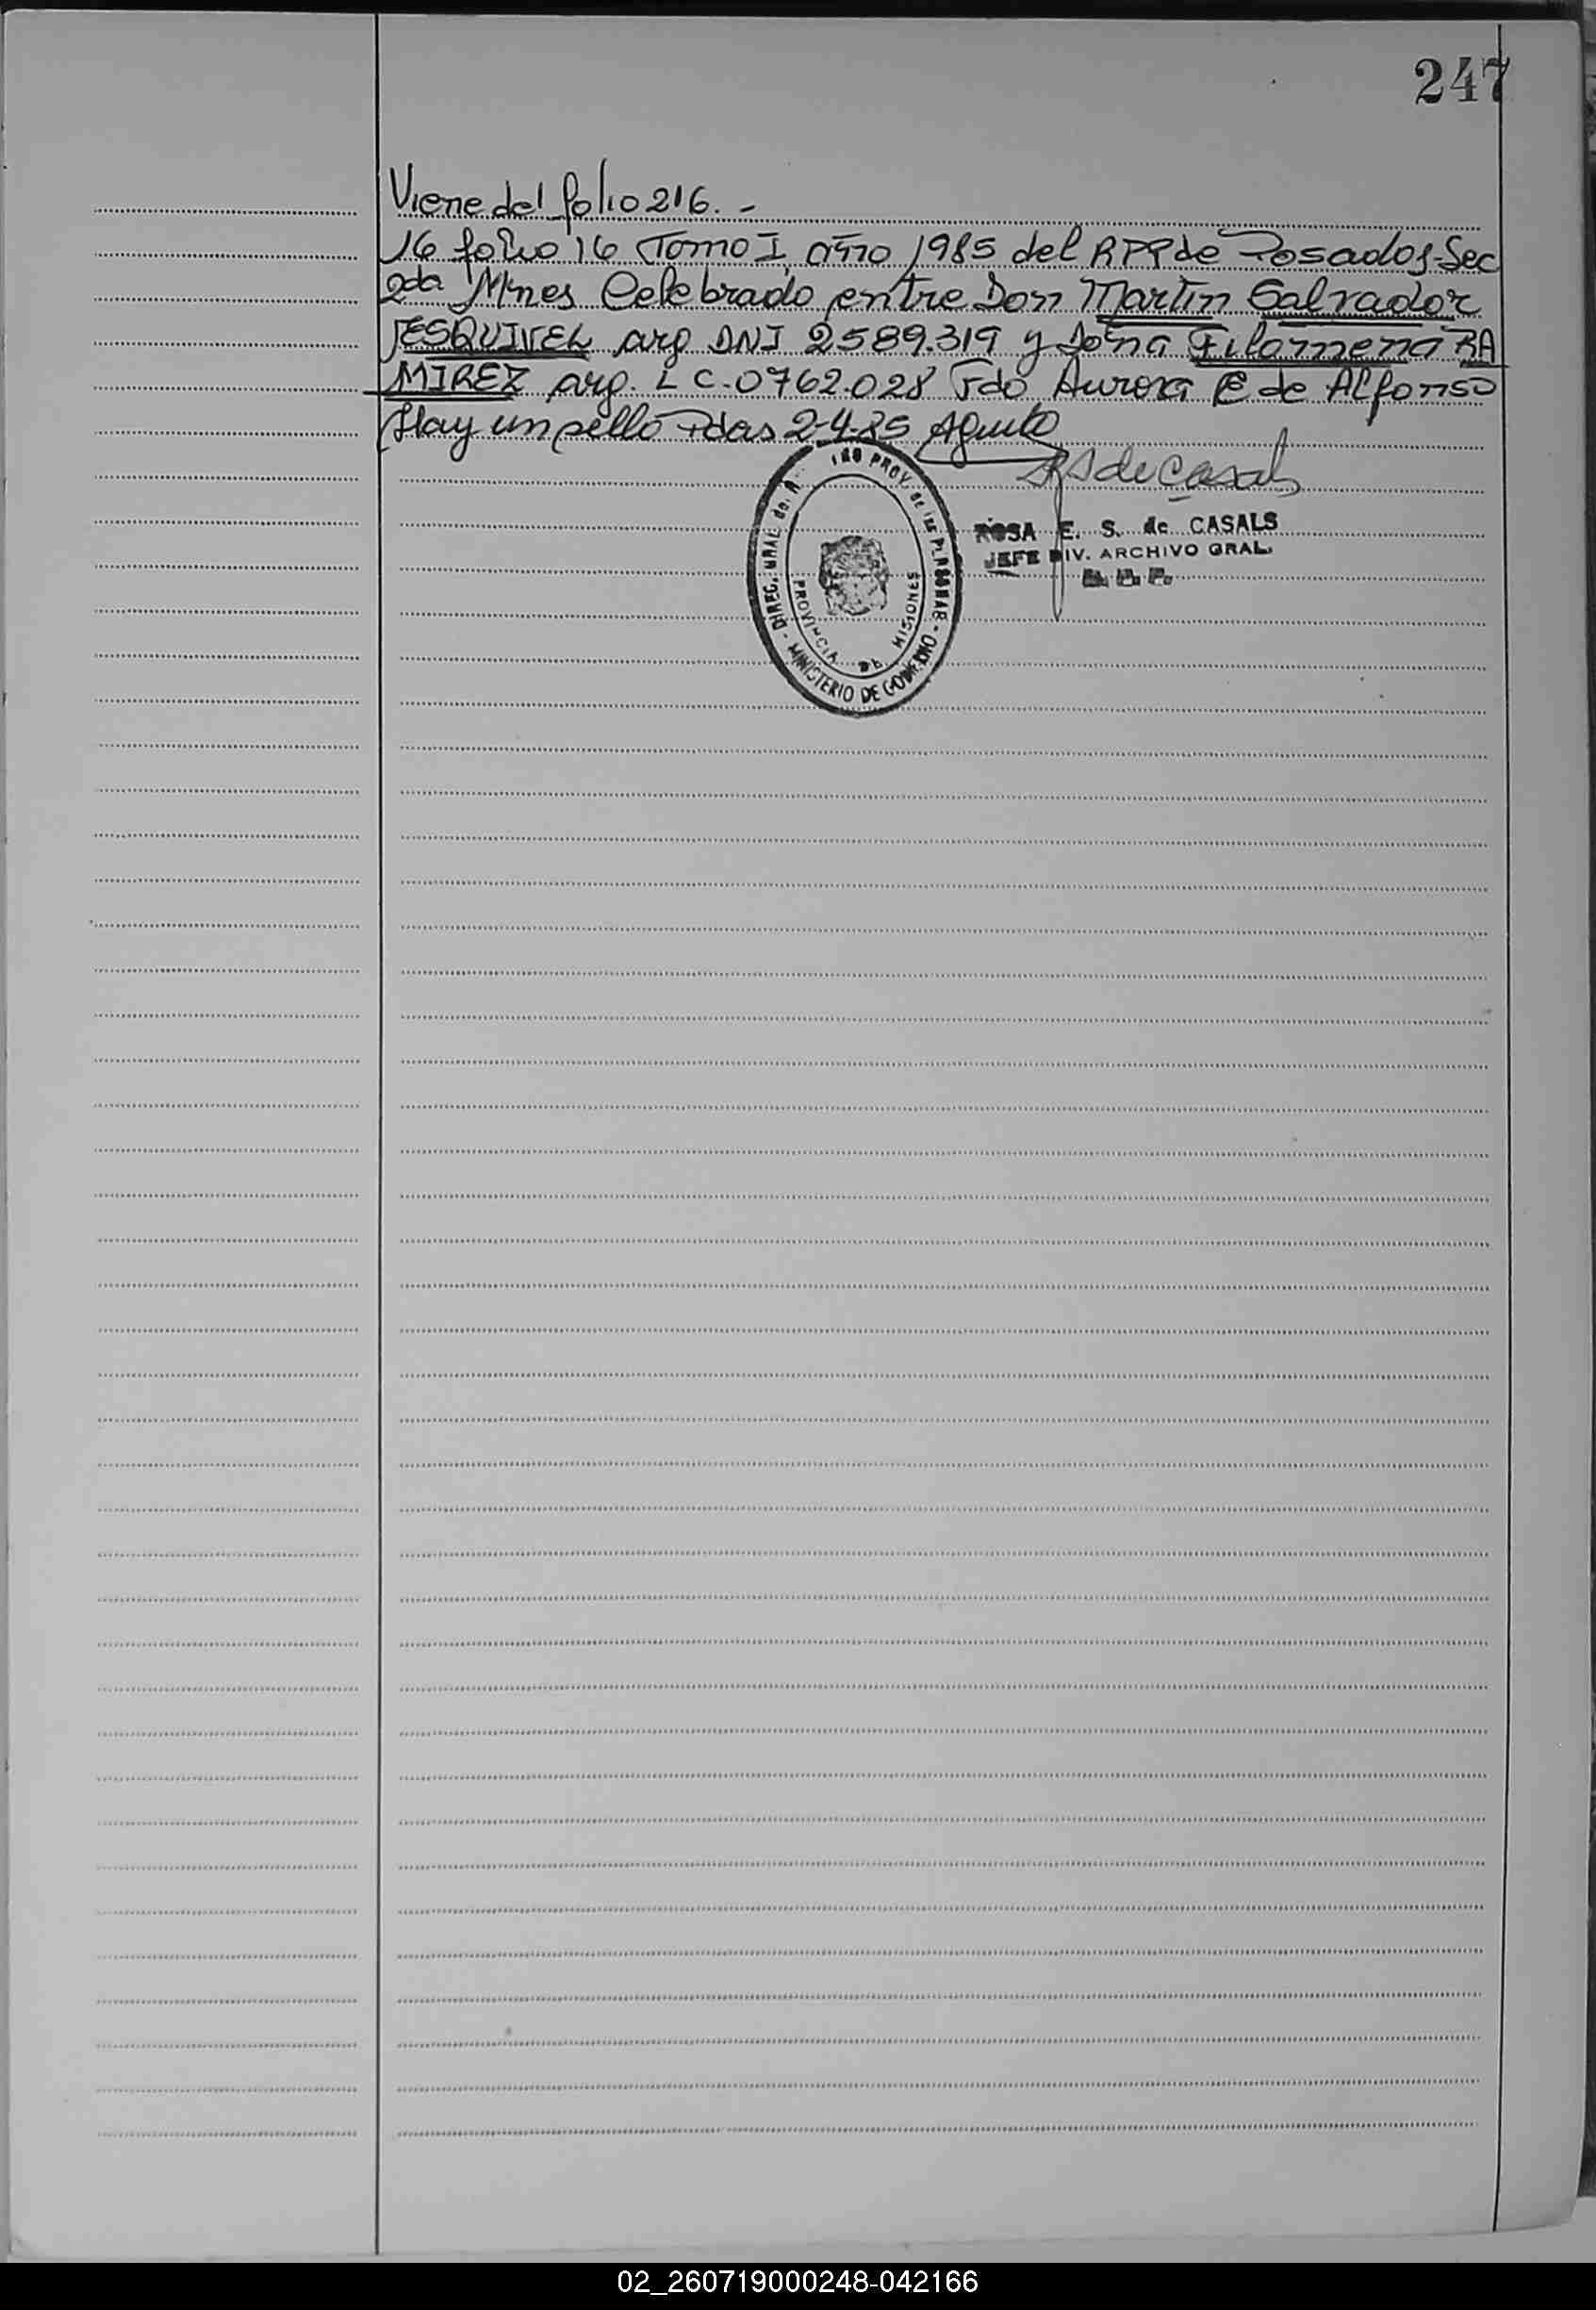 247
Viene del folio 216.-
16 folio 16 Tomo I, año 1985 del RPP de Posadas-Sec
2da Mnes Celebrado entre Don Martin Salvador
ESQUIVEL arg DNI 2589.319 y Doña Filomena RA
MIREZ arg. L C. 0762.028 Fdo Aurora E de Alfonso
Hay un sello Pdas 2-4-85
RS de Casals
DIREC. GRAL. de. R. PROV. de las PERSONAS - MINISTERIO DE GOBIERNO -
PROVINCIA DE MISIONES
ROSA E. S. de CASALS
JEFE DIV. ARCHIVO GRAL.
02_260719000248-042166